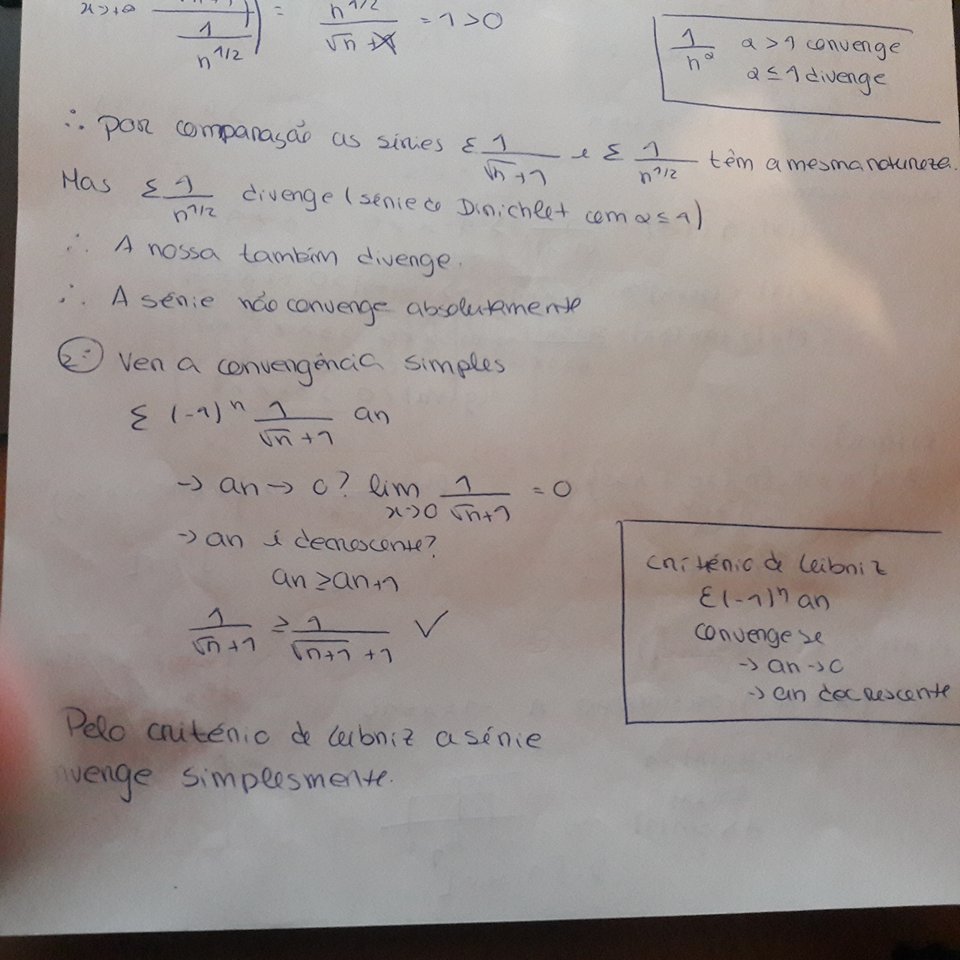 x→+∞ 1/n^1/2 = n^1/2/√n+1 = 1 > 0
1/n^α α > 1 converge
α ≤ 1 diverge
∴ por comparação as séries Σ 1/√n+1 e Σ 1/n^1/2 têm a mesma natureza.
Mas Σ 1/n^1/2 diverge (série de Dirichlet com α ≤ 1)
∴ A nossa também diverge.
∴ A série não converge absolutamente
2º Ver a convergência simples
Σ (-1)^n 1/√n+1 an
→ an → 0? lim x→0 1/√n+1 = 0
→ an é decrescente?
an ≥ an+1
1/√n+1 ≥ 1/√n+1 +1 ✓
critério de Leibniz
Σ(-1)^n an
converge se
→ an → 0
→ an decrescente
Pelo critério de Leibniz a série
nverge simplesmente.